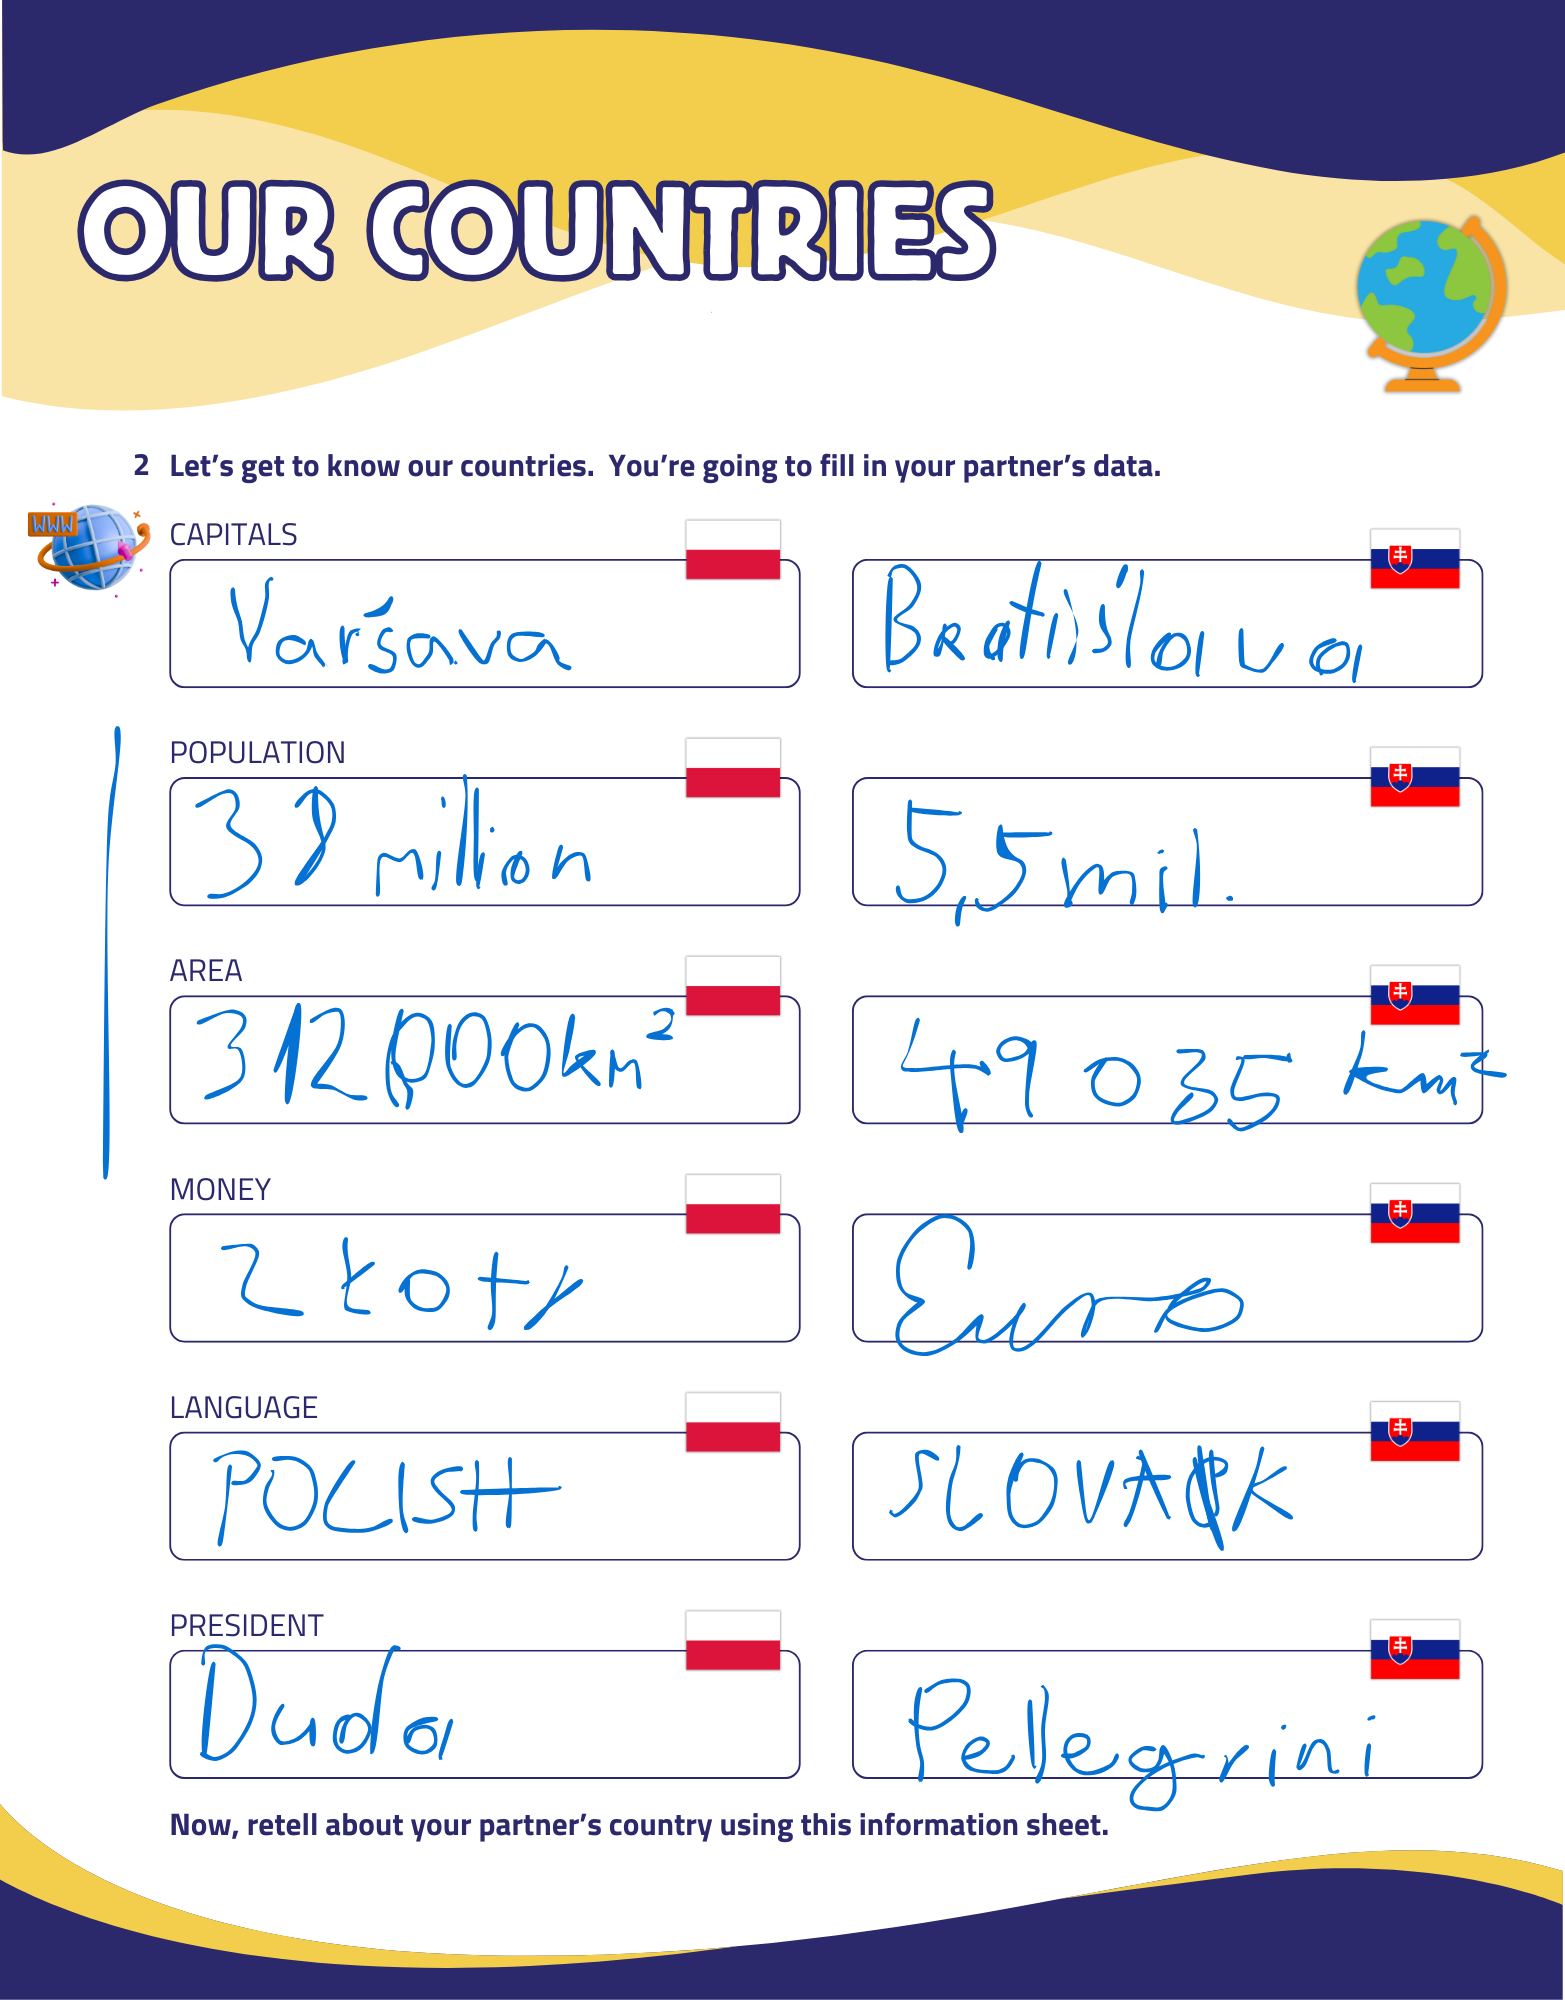 OUR COUNTRIES
2 Let's get to know our countries. You're going to fill in your partner's data.
WWW
CAPITALS
Varšava
Bratislava
POPULATION
38 million
5,5 mil.
AREA
312,000 km²
49 035 km²
MONEY
Złoty
Euro
LANGUAGE
POLISH
SLOVAK
PRESIDENT
Duda
Pellegrini
Now, retell about your partner's country using this information sheet.